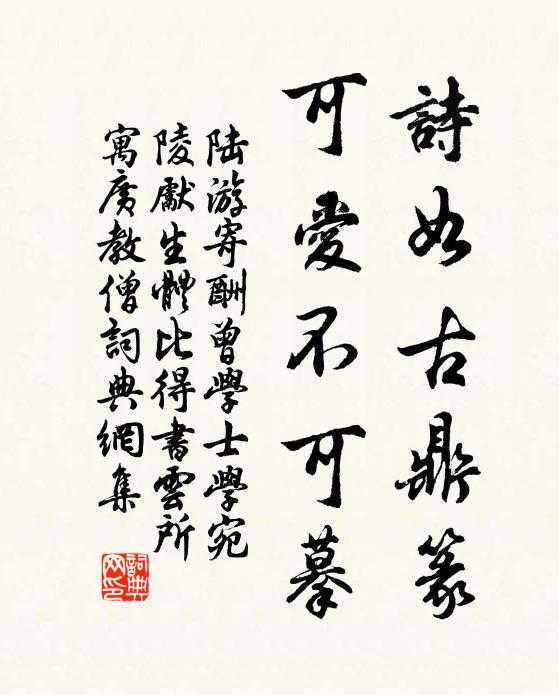 詩如古鼎篆
可愛不可摹
陸游寄酬曾學士學宛
陵獻生體比得書雲所
寓廣教僧詞典網集
詞典網印